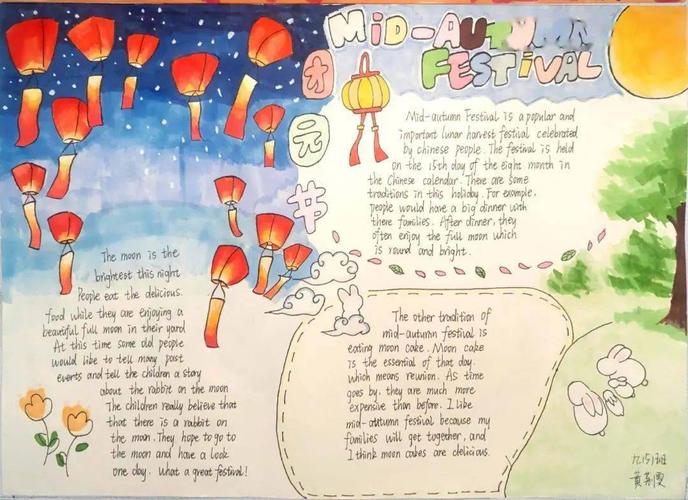 MID-AUTUMN
FESTIVAL
团
园
节
Mid-autumn Festival is a popular and
important lunar harvest festival celebrated
by chinese people. The festival is held
on the 15th day of the eight month in
the Chinese calendar. There are some
traditions in this holiday. For example,
people would have a big dinner with
there families. After dinner, they
often enjoy the full moon which
is round and bright.
The moon is the
brightest this night
People eat the delicious.
food while they are enjoying a
beautiful full moon in their yard
At this time some old people
would like to tell many past
events and tell the children a story
about the rabbit on the moon
The children really believe that
that there is a rabbit on
the moon. They hope to go to
the moon and have a look
one day. What a great festival!
The other tradition of
mid-autumn festival is
eating moon cake. Moon cake
is the essential of that day.
which means reunion. As time
goes by, they are much more
expensive than before. I like
mid-autumn festival because my
families will get together, and
I think moon cakes are delicious.
九(5)班
黄